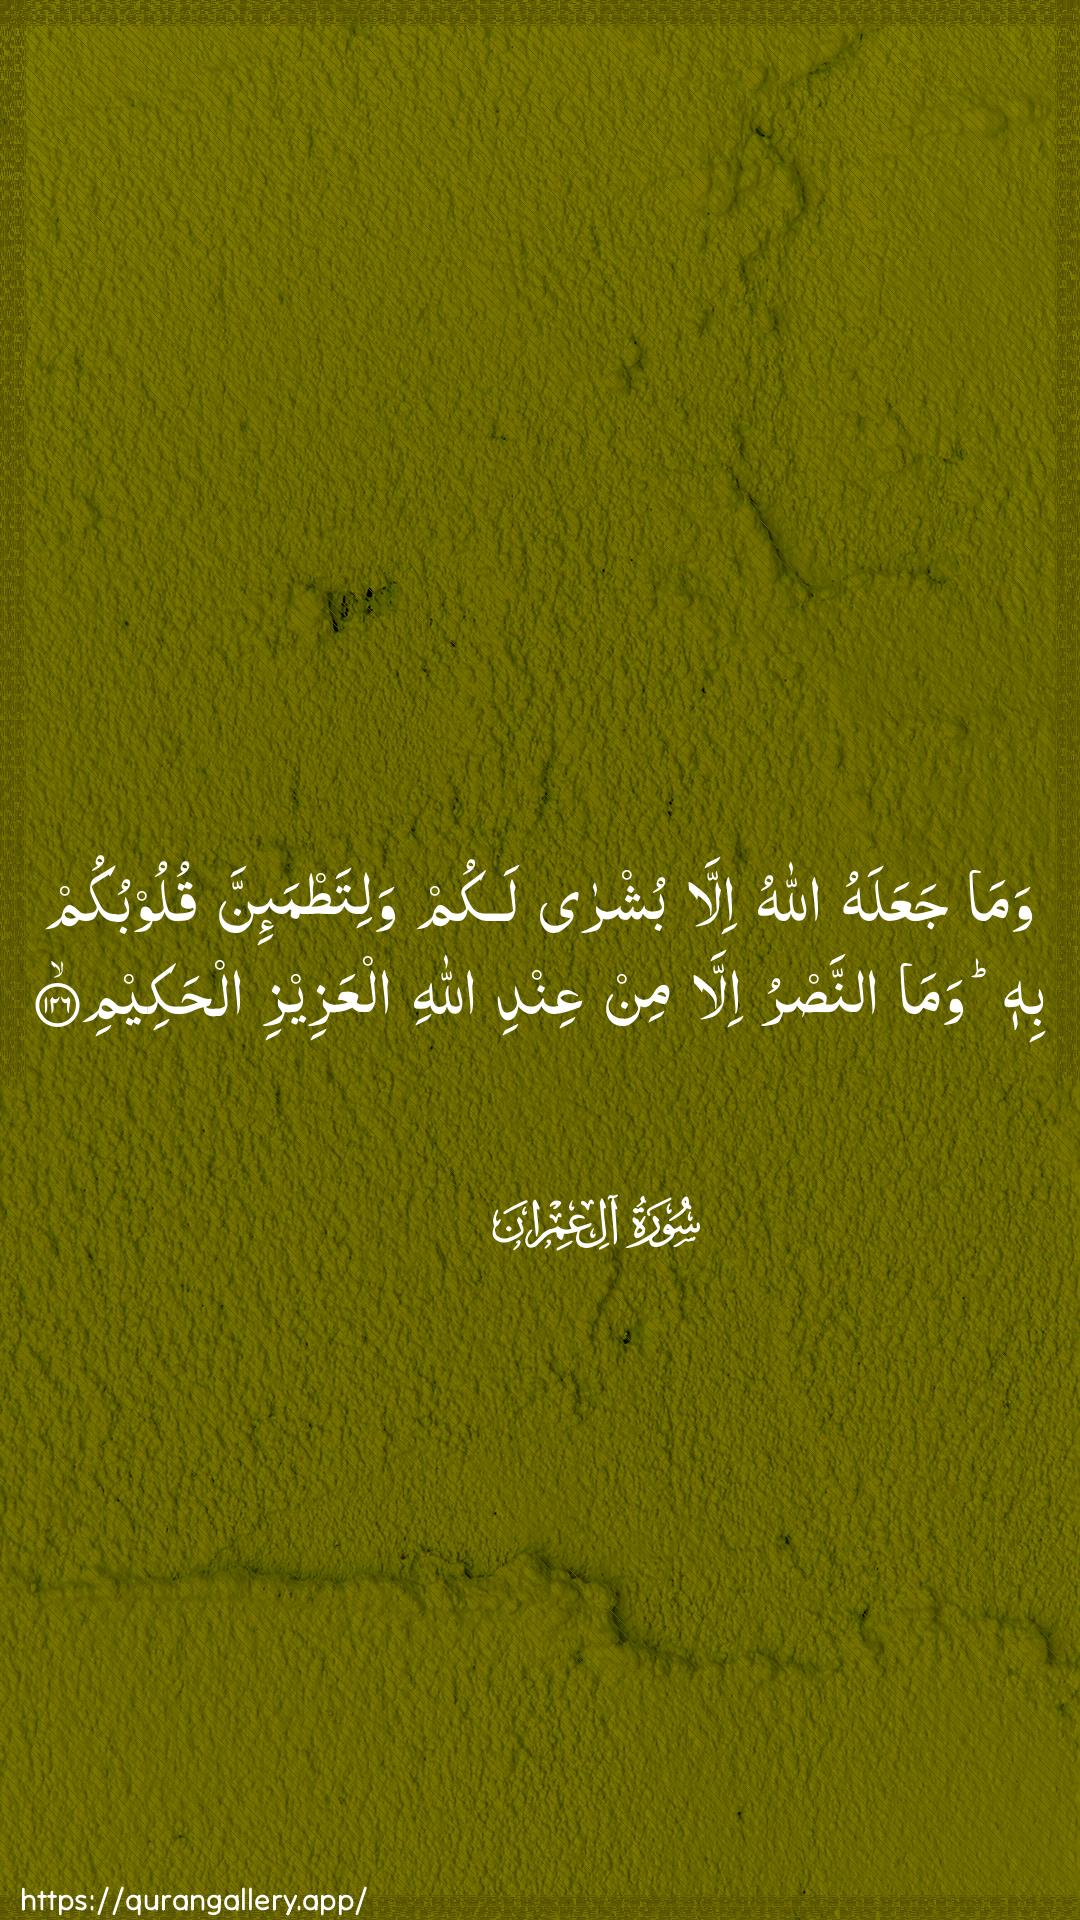 وَمَا جَعَلَهُ اللّٰهُ اِلَّا بُشْرٰى لَـكُمْ وَلِتَطْمَئِنَّ قُلُوْبُكُمْ
بِهٖ‌ؕ وَمَا النَّصْرُ اِلَّا مِنْ عِنْدِ اللّٰهِ الْعَزِيْزِ الْحَكِيْمِۙ‏ ﴿۱۲۶﴾
سُوْرَةُ آلِ عِمْرَانَ
https://qurangallery.app/